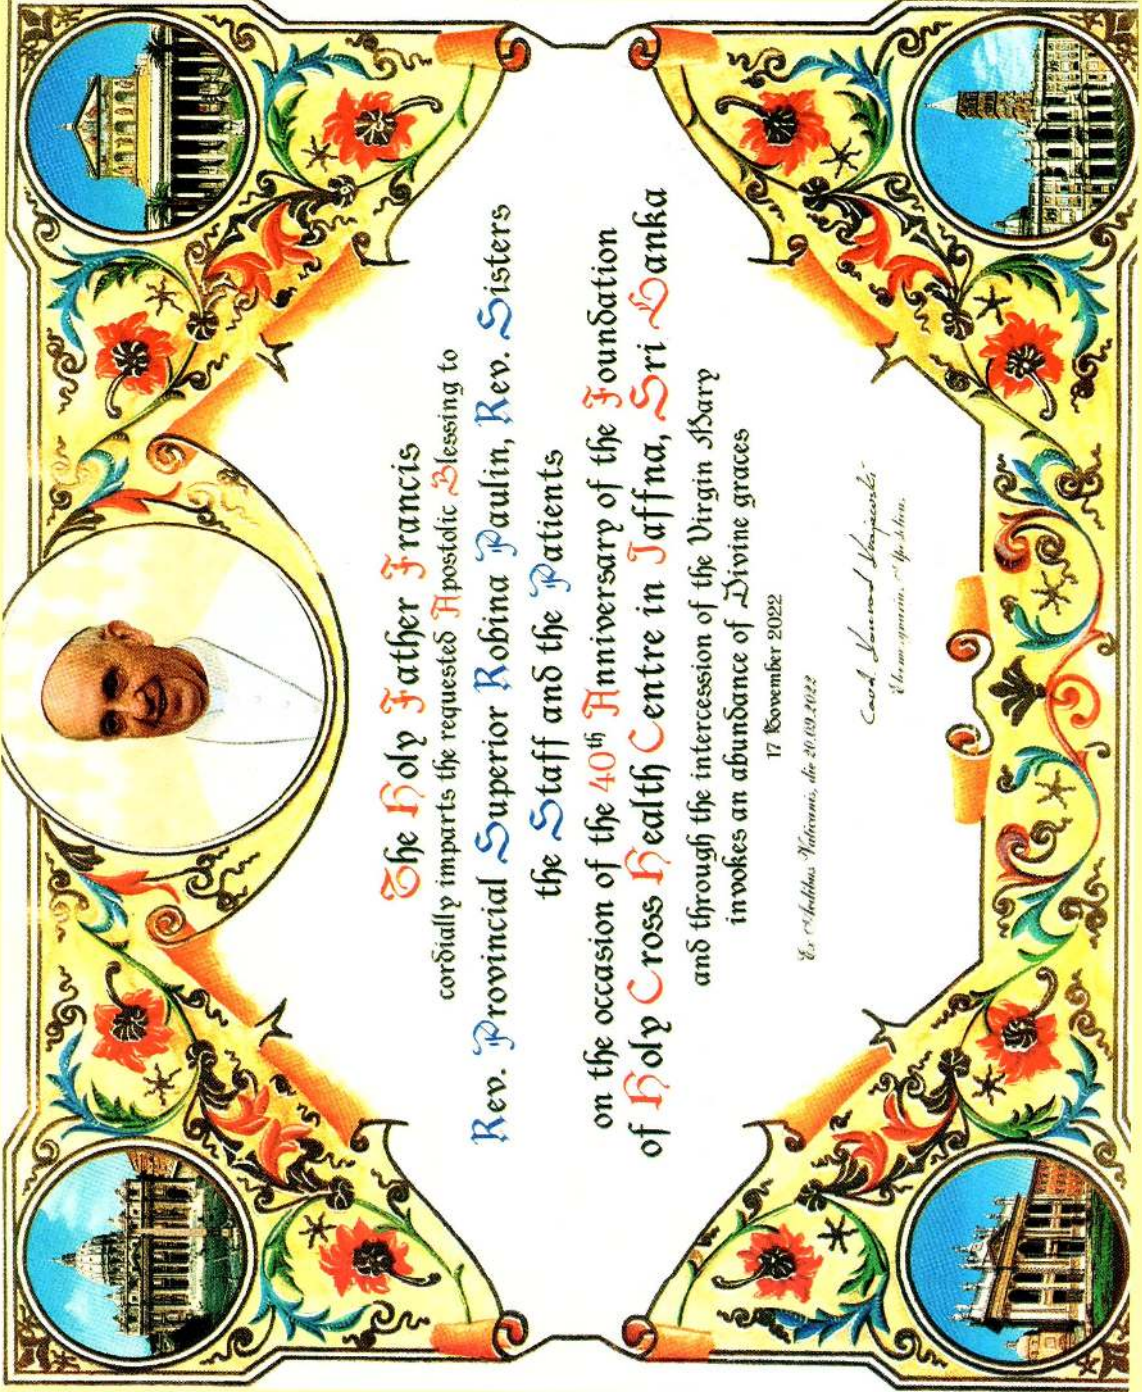 The Holy Father Francis
cordially imparts the requested Apostolic Blessing to
Rev. Provincial Superior Robina Paulin, Rev. Sisters
the Staff and the Patients
on the occasion of the 40th Anniversary of the Foundation
of Holy Cross Health Centre in Jaffna, Sri Lanka
and through the intercession of the Virgin Mary
invokes an abundance of Divine graces
17 November 2022
Ex Aedibus Vaticanis, die 20.09.2022